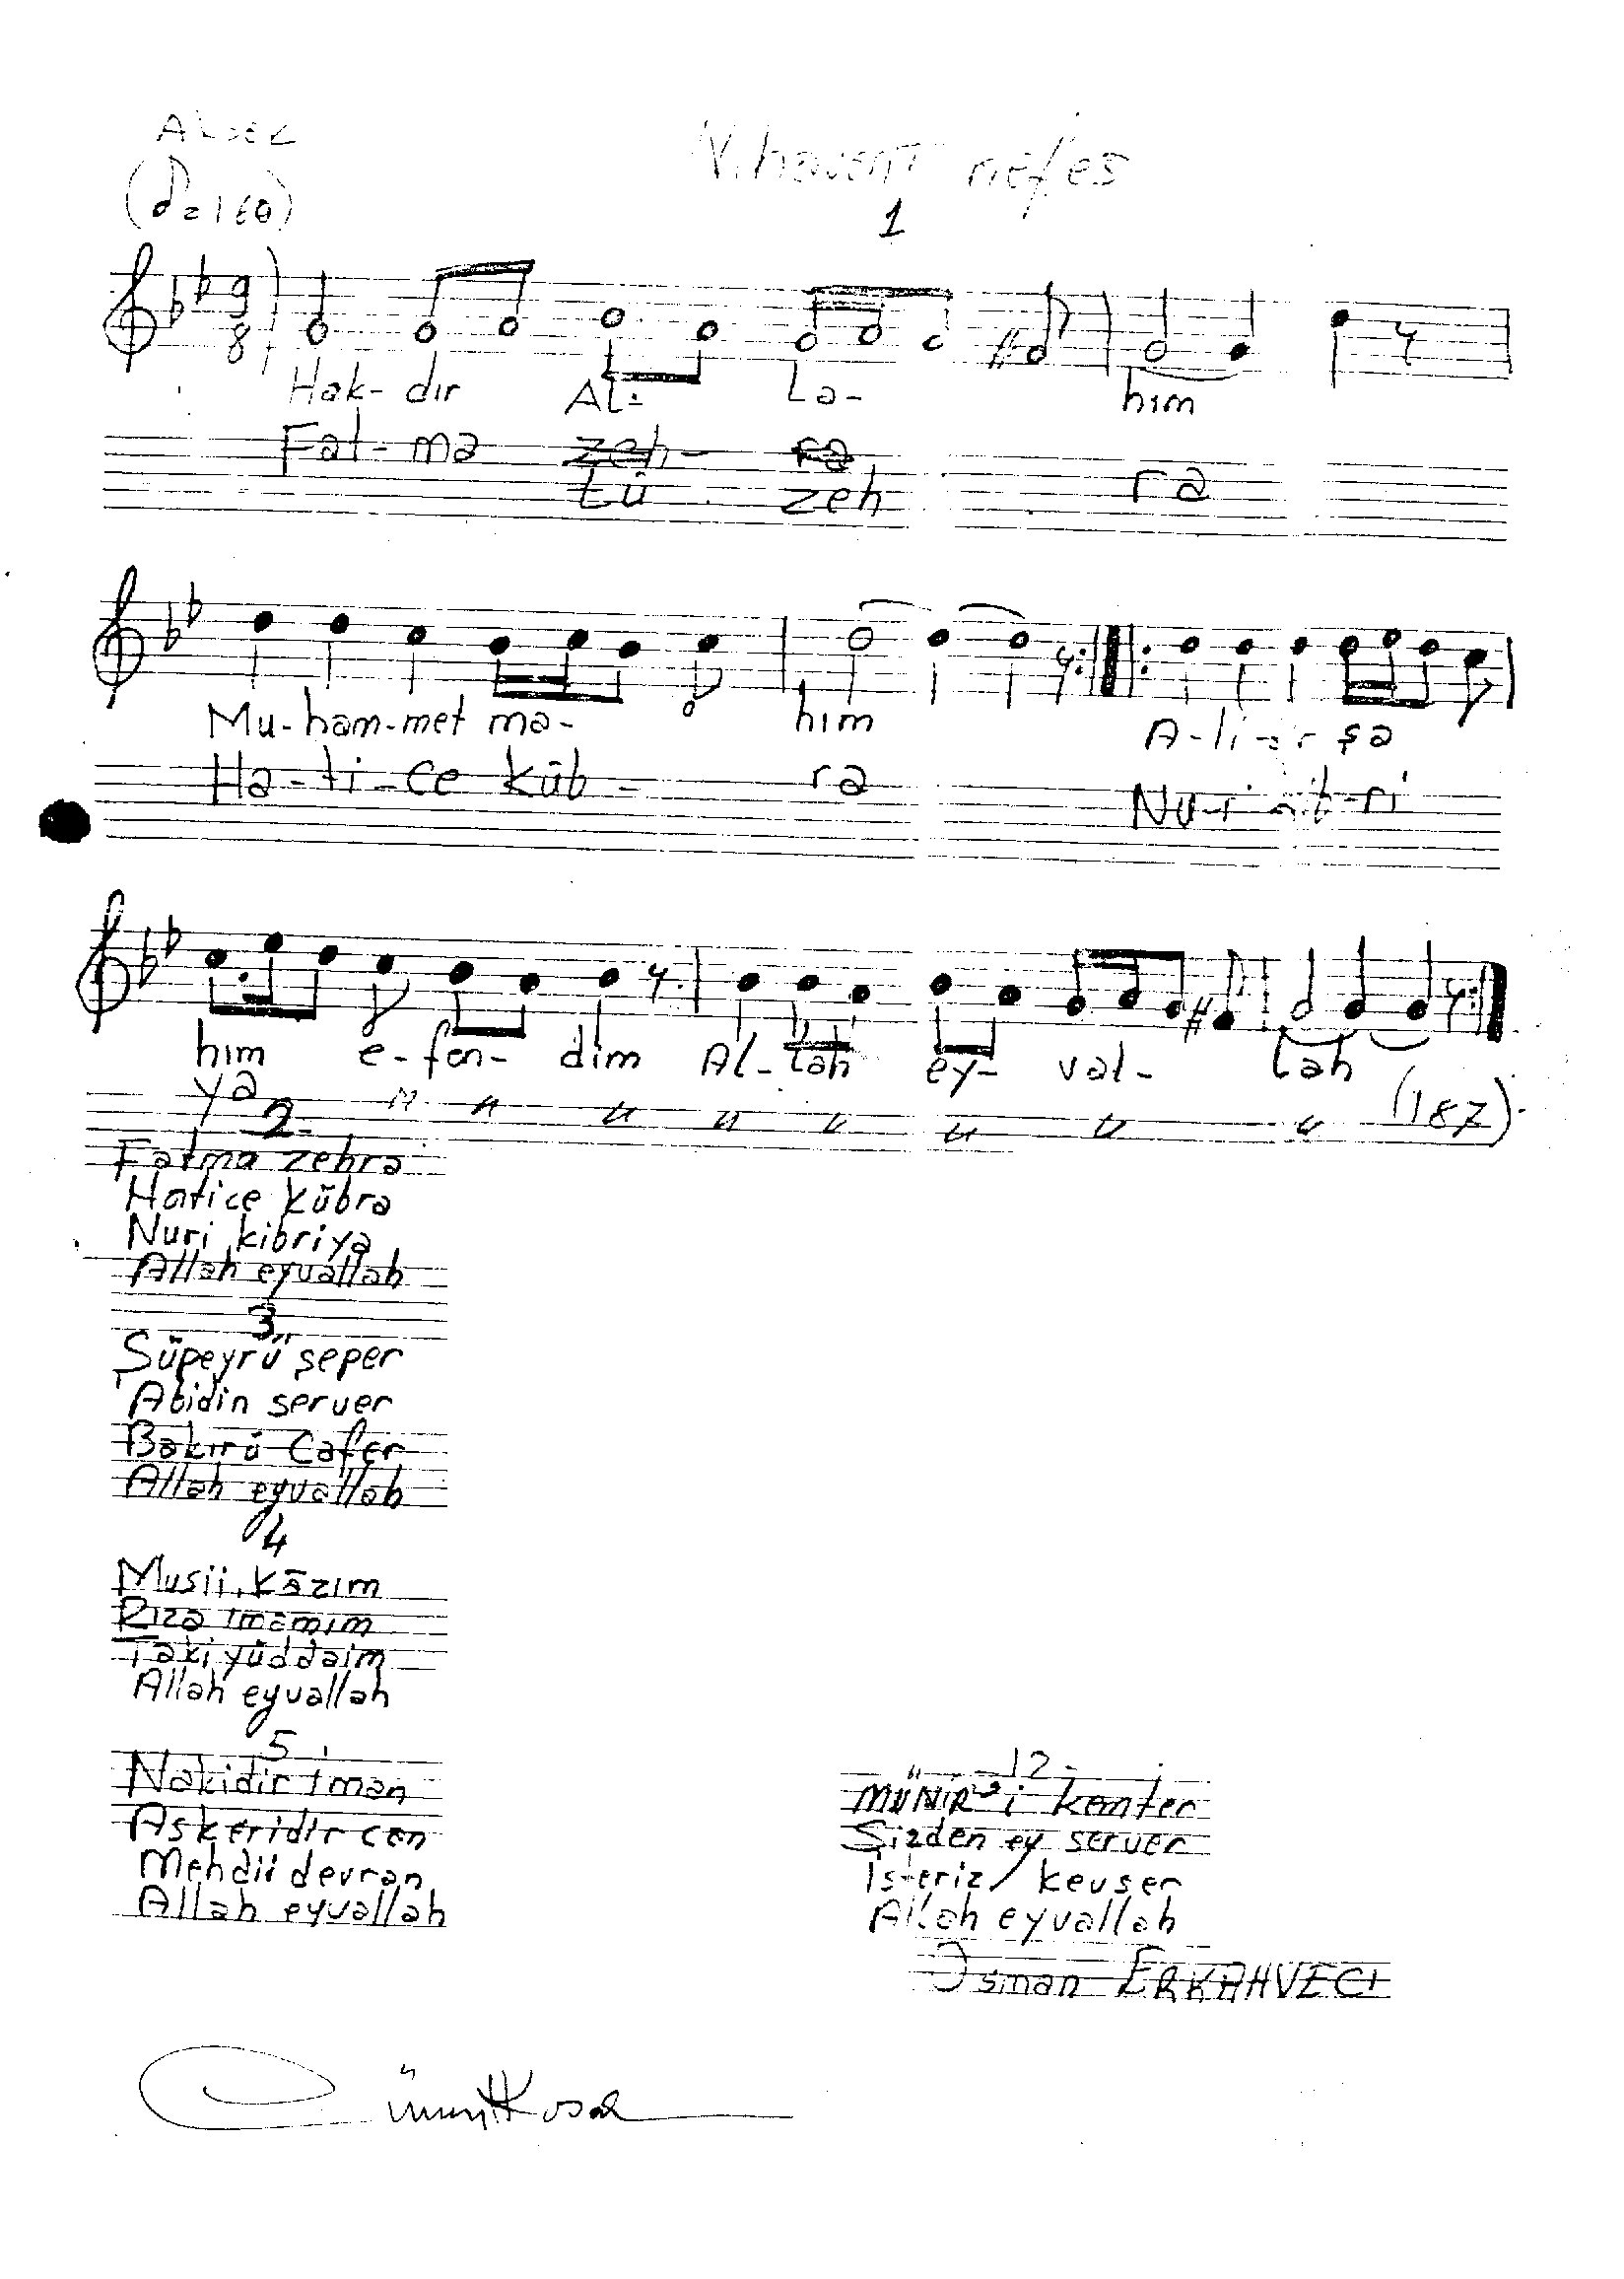 Nihavent nefes
(♪=160)
1
9
8
Hak- dır Al- La- hım
Fat- ma zeh- ra
tü zeh ra
Mu-ham-met ma- hım A-li-dir şa
Ha-ti-ce Küb- ra Nu-ri kib-ri
hım e-fen- dim Al-lah ey- val- lah
ya " " " " " " " " (187)
2
Fatma zehra
Hatice Kübra
Nuri kibriya
Allah eyvallah
3
Şüpeyrü şeper
Abidin server
Bakırü Cafer
Allah eyvallah
4
Musii kâzım
Rıza imamım
Takiyüddaim
Allah eyvallah
5
Nakidir iman
Askeridir can
Mehdii devran
Allah eyvallah
-12-
MÜNİR'i kemter
Sizden ey server
İsteriz kevser
Allah eyvallah
Osman ERKAHVECİ